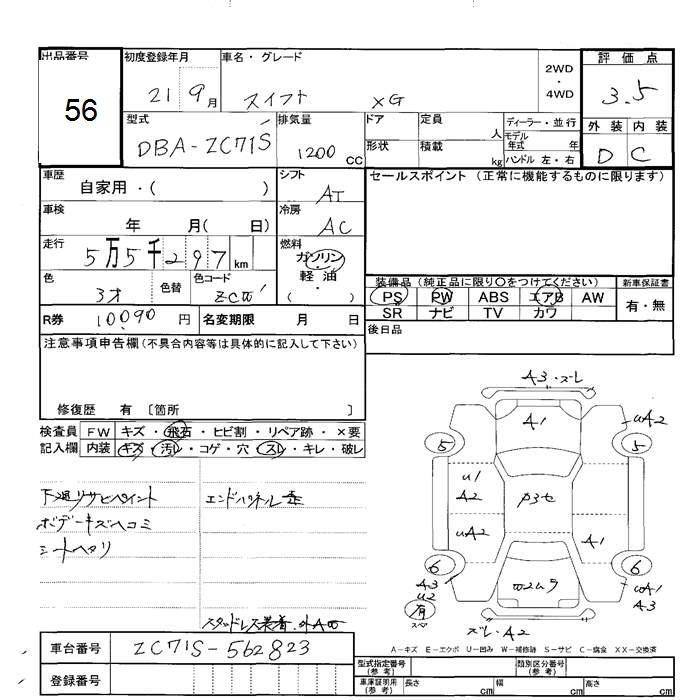 出品番号 初度登録年月 車名・グレード 2WD・4WD 評価点
56 21 9月 スイフト XG 3.5
型式 排気量 ドア 定員 人 ディーラー・並行 外装 内装
DBA-ZC71S 1200cc 形状 積載 kg モデル年式 年 ハンドル 左・右 D C
車歴 シフト セールスポイント (正常に機能するものに限ります)
自家用・( ) AT
車検 冷房
年 月( 日) AC
走行 燃料
5万5千297km ガソリン
軽・油
( )
色 色替 色コード 装備品 (純正品に限り〇をつけてください) 新車保証書
PS PW ABS エアB AW 有・無
SR ナビ TV カワ
R券 10090円 名変期限 月 日 後日品
注意事項申告欄(不具合内容等は具体的に記入して下さい)
修復歴 有 〔箇所 〕
検査員 FW キズ・飛石・ヒビ割・リペア跡・×要
記入欄 内装 キズ・汚レ・コゲ・穴・スレ・キレ・破レ
下廻りサビペイント エンドパネル歪
ボデーキズヘコミ
シートヘタリ
スタッドレス装着
A3・スレ
A1
uA2
5 5
u1
A2
uA2
A1
6 6
A3
u2
uA1
A3
有
スペア
スレ・A2
車台番号 ZC71S-562823 A-キズ E-エクボ U-凹み W-補修跡 S-サビ C-腐食 XX-交換済
登録番号 型式指定番号(参考) 類別区分番号(参考)
車庫証明用(参考) 長さ cm 幅 cm 高さ cm